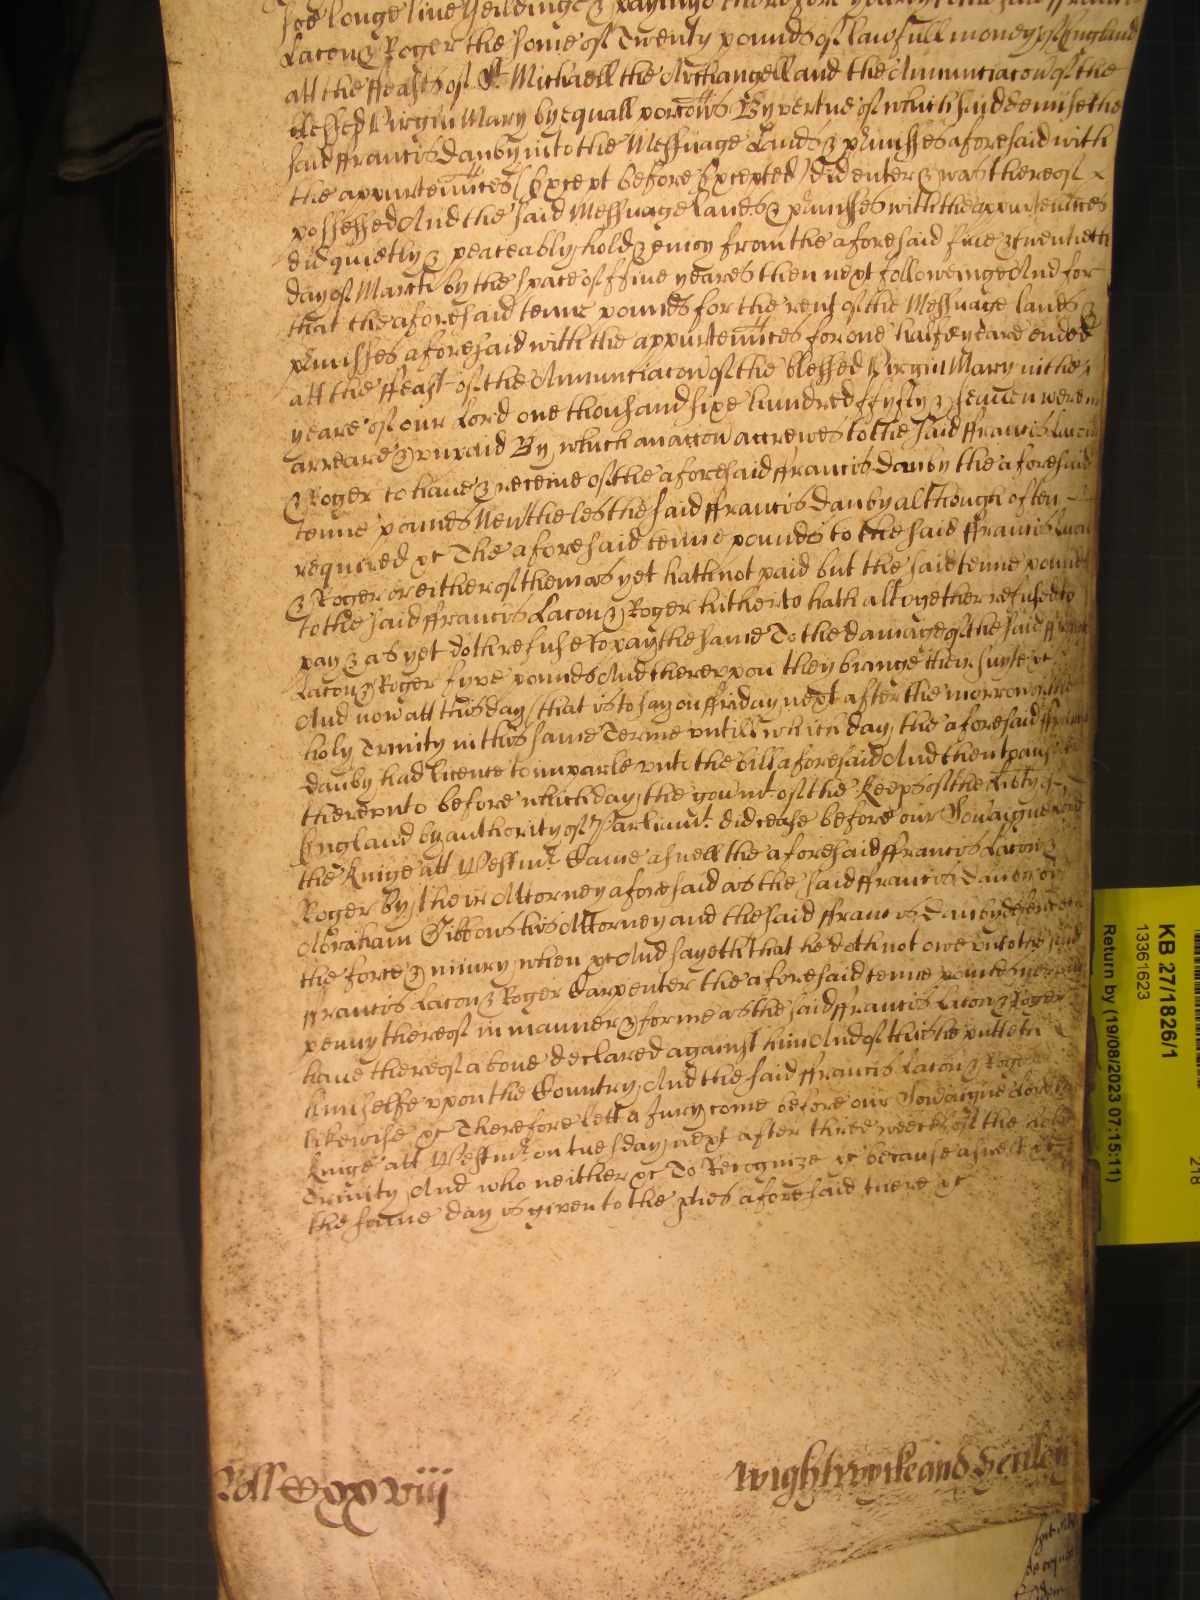 soe longe live Yeildinge & payinge therefore yearly to the said ffrancis
Lacon & Roger the some of Twenty pounds of lawfull money of England
att the ffeasts of St Michaell the Archangell and the Annunciacon of the
blessed Virgin Mary by equall porcons By vertue of which said demise the
said ffrancis Danby into the Messuage Lands & pmisses aforesaid with
the appurtennces (Except before Excepted) did enter & was thereof
possessed And the said Messuage lands & pmisses with the appurtennces
did quietly & peaceably hold & enioy from the aforesaid five & twentieth
day of March by the space of ffive yeares then next followeinge And for
that the aforesaid tenne pounds for the rent of the Messuage lands &
pmisses aforesaid with the appurtennces for one halfe yeare ended
att the ffeast of the Annunciacon of the blessed Virgin Mary in the
yeare of our Lord one thousand sixe hundred ffyfty & seaven were in
arreare & unpaid By which an accon accrewes to the said ffrancis Lacon
& Roger to have & receive of the aforesaid ffrancis Danby the aforesaid
tenne pounds Nevtheles the said ffrancis Danby although often
required &c The aforesaid tenne pounds to the said ffrancis Lacon
& Roger or either of them as yet hath not paid but the said tenne pounds
to the said ffrancis Lacon & Roger hitherto hath altogether refused to
pay & as yet doth refuse to pay the same To the damage of the said ffrancis
Lacon & Roger fyve pounds And thereupon they bringe their suyte &c
And now att this day (that is to say on ffriday next after the morrow of the
holy Trinity in this same Terme untill which day the aforesaid ffrancis
Danby had licence to imparle unto the bill aforesaid And then to answere
thereunto before which day the govmt of the Keeps of the Libty of
England by authority of Parliamt. did cease before our Sovaigne Lord
the Kinge att Westmr Came aswell the aforesaid ffrancis Lacon &
Roger by their Attorney aforesaid as the said ffrancis Danby by
Abraham Gibbons his Attorney and the said ffrancis Danby defendeth
the force & iniury when &c And sayeth that he doth not owe unto the said
ffrancis Lacon & Roger Carpenter the aforesaid tenne pounds nor any
penny thereof in manner & forme as the said ffrancis Lacon & Roger
have thereof above declared against him And of this he putteth
himselfe upon the Country And the said ffrancis Lacon & Roger
likewise &c Therefore lett a Jury come before our Sovaigne Lord the
Kinge att Westmr. on tuesday next after three weeks of the holy
Trinity And who neither &c To Recognize &c because aswell &c
the same day is given to the pties aforesaid there &c
Roll CXXXviij
Wightwycke and Henley
KB 27/1826/1
13361623
Return by (19/08/2023 07:15:11)
218